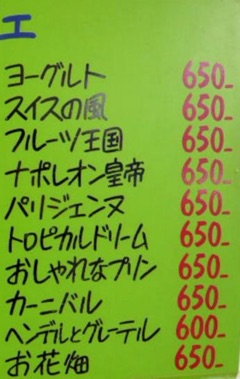 エ
ヨーグルト 650-
スイスの風 650-
フルーツ王国 650-
ナポレオン皇帝 650-
パリジェンヌ 650-
トロピカルドリーム 650-
おしゃれなプリン 650-
カーニバル 650-
ヘンデルとグレーテル 600-
お花畑 650-